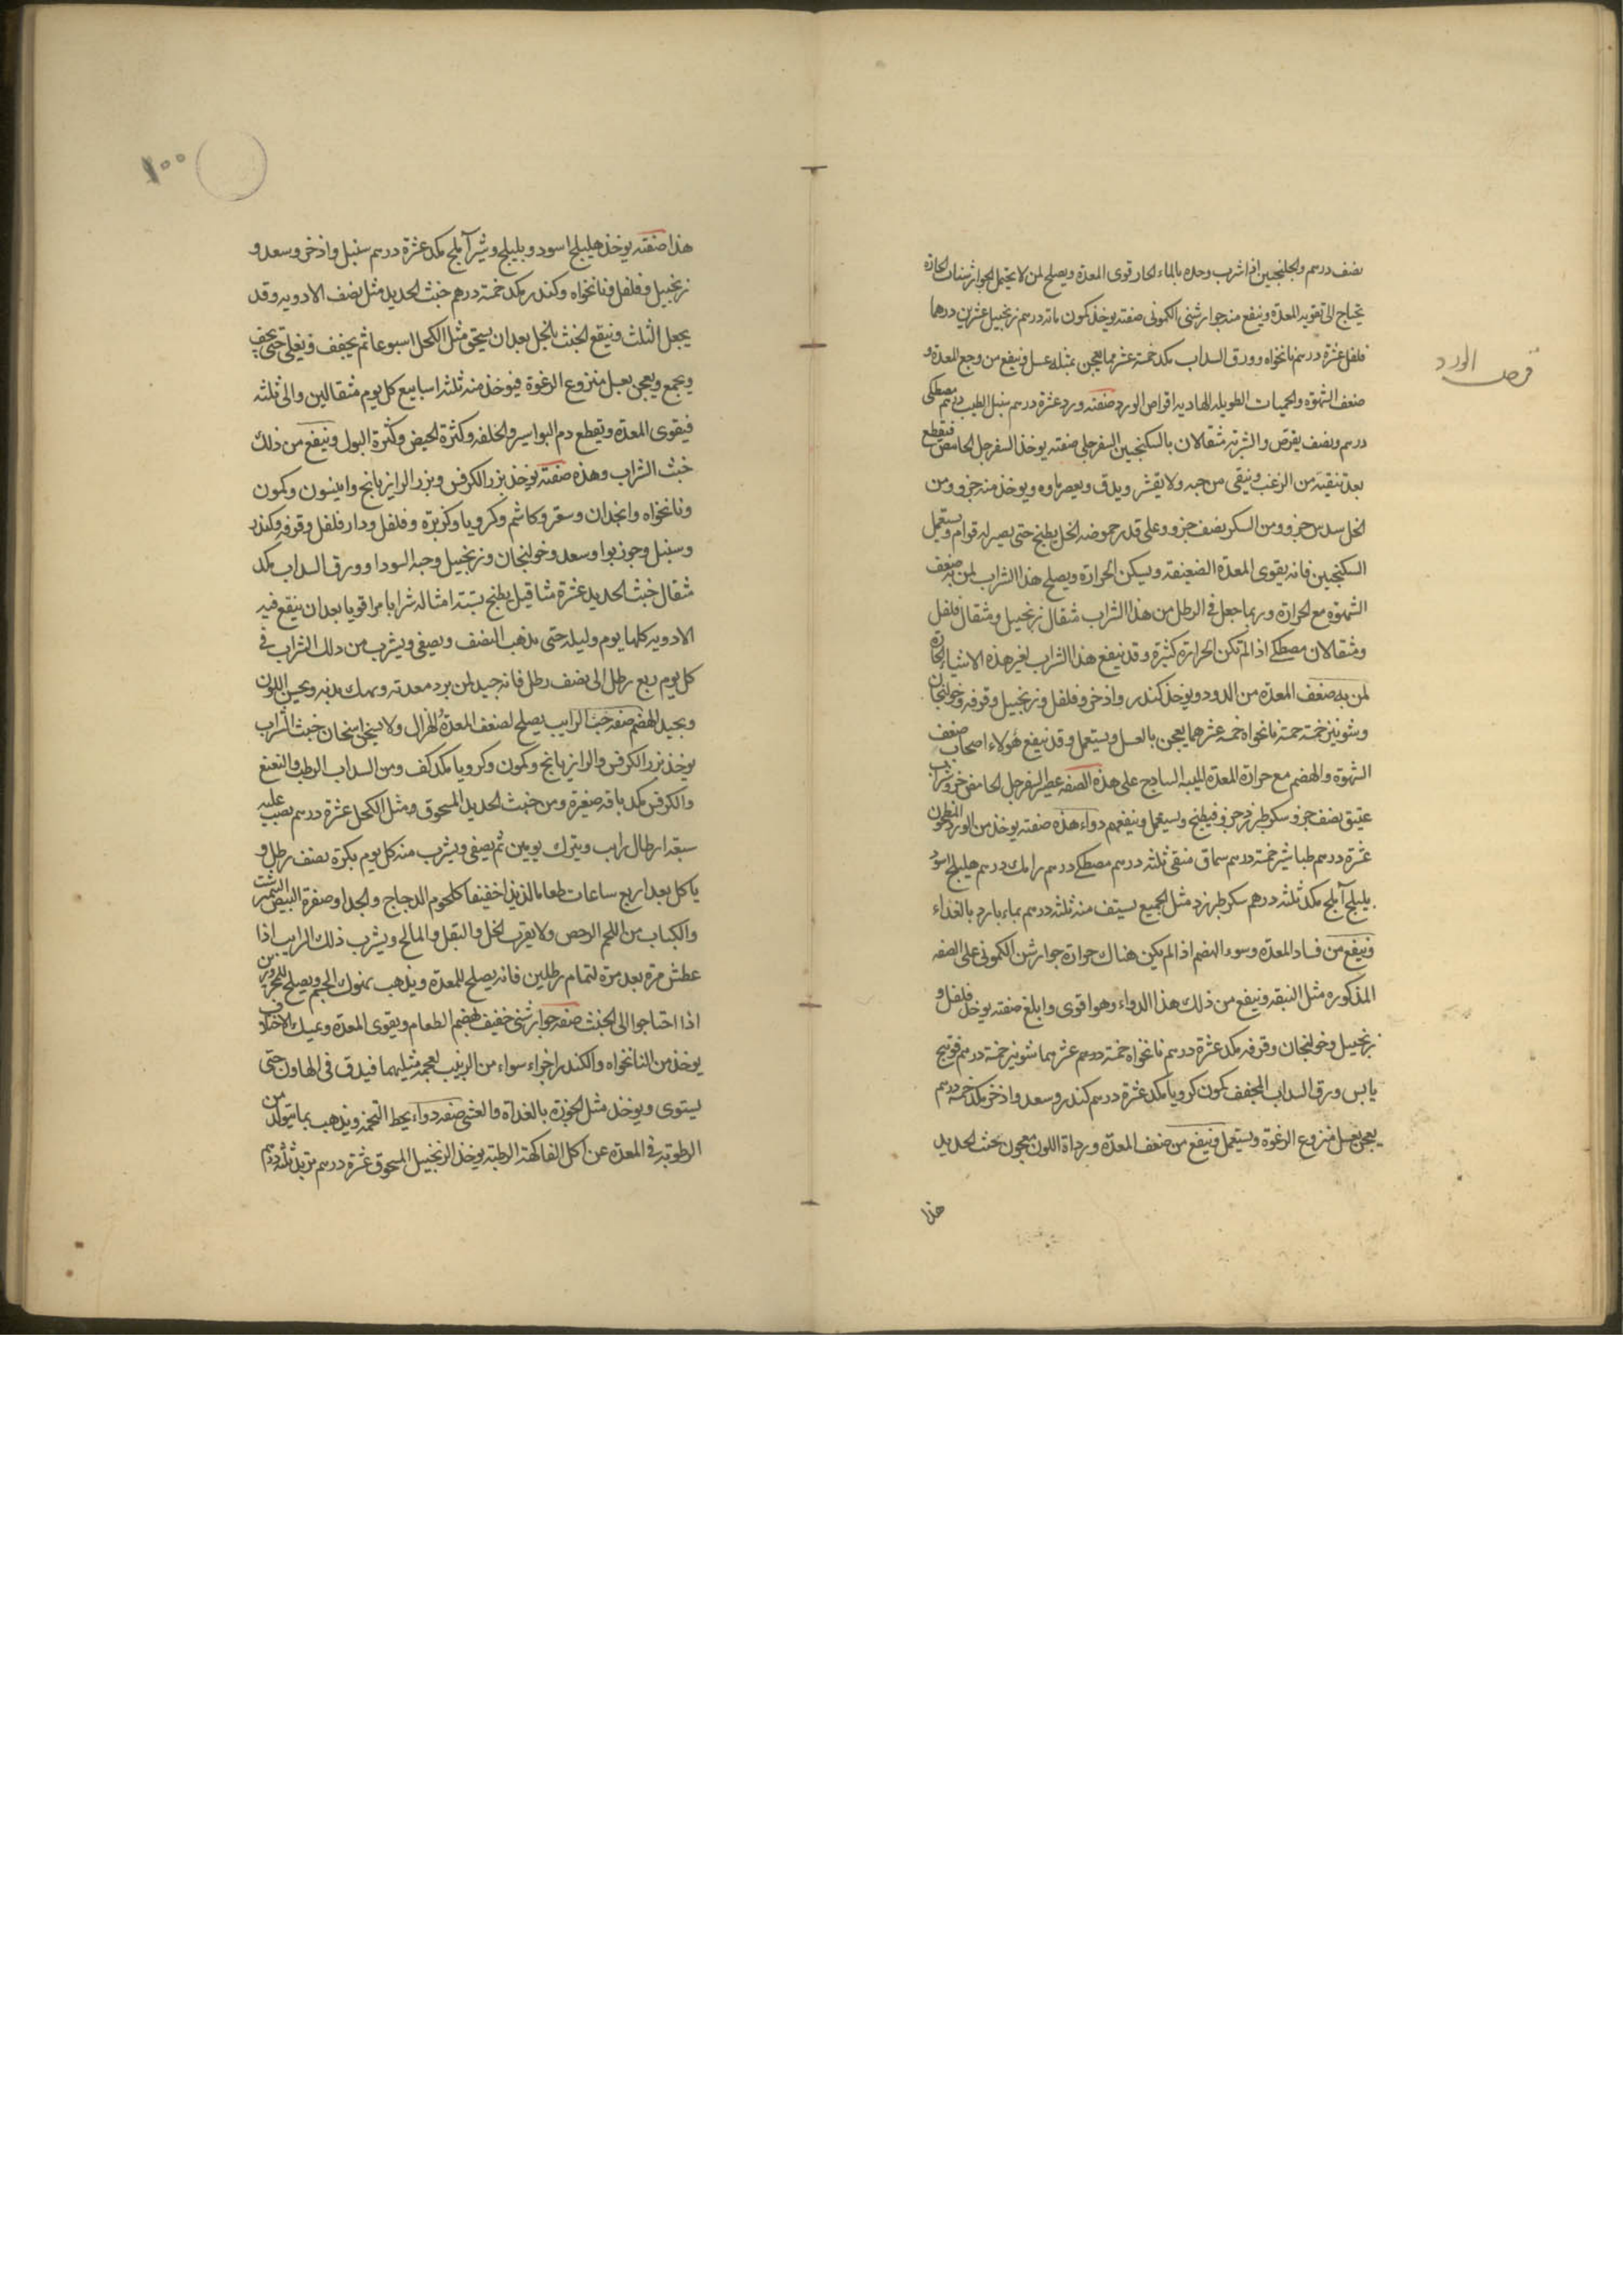 نصف درسم والجلنجبين اذا شرب وحده بالماء الحار قوى المعدة ويصلح لمن لا يحتمل الجوارشنات الحارة
يحتاج الى تقويه المعدة وينفع منه جوارشنى الكمونى صفته يوخذ كمون مائه درسم زنجبيل عشرين درهما
فلفل عشرة درسم نانخواه وورق السداب مكد خمسة عشر مما يعجن بمثله عسل وينفع من وجع المعدة و
ضعف الشهوة والحميات الطويله الهاديه اقراص الورد صفته ورد عشرة درسم سنبل الطيب درسم مصطكى
درسم ونصف يقرص والشربة مثقالان بالسكنجبين السفرجلى صفته يوخذ السفرجل الحامض فيقطع
بعد تنقيته من الزغب وينقى من حبه ولا يقشر ويدق ويعصر ماوه ويوخذ منه جزو ومن
الخل سدس جزو ومن السكر نصف جزو وعلى قدر حموضه الخل يطبخ حتى يصير له قوام ويستعمل
السكنجبين فانه يقوى المعدة الضعيفة ويسكن الحرارة ويصلح هذا الشراب لمن به ضعف
الشهوة مع الحرارة وربما جعل فى الرطل من هذا الشراب مثقال زنجبيل ومثقال فلفل
ومثقالان مصطكى اذا لم تكن الحرارة كثيرة وقد ينفع هذا الشراب بغير هذه الاشياء الحارة
لمن به ضعف المعدة من الدود ويوخذ كندر واذخر وفلفل وزنجبيل وقرفه وخولنجان
وشونيز خمسة خمسة نانخواه خمسة عشر مما يعجن بالعسل ويستعمل وقد ينفع هولاء اصحاب ضعف
الشهوة والهضم مع حرارة المعدة الميبه الساذج على هذه الصفه عصير السفرجل الحامض جزو شراب
عتيق نصف جزو سكر طبرزد جزو فيطبخ ويستعمل وينفعهم دواء هذه صفته يوخذ من الورد المطحون
عشرة درسم طباشير خمسة درسم سماق منقى ثلثه درسم مصطكى درسم رامك درسم هليلج اسود
بليلج آملج مكد ثلثه درهم سكر طبرزد مثل الجميع يستف منه ثلثه درسم بماء بارد بالغداء
وينفع من فساد المعدة وسوء الهضم اذا لم يكن هناك حرارة جوارشن الكمونى على الصفه
المذكوره مثل النبقه وينفع من ذلك هذا الدواء وهو اقوى وابلغ صفته يوخذ فلفل و
زنجبيل وخولنجان وقرفه مكد عشرة درسم نانخواه خمسة درسم عشر مما شونيز خمسة درسم فوتنج
يابس ورق السداب المجفف كمون كرويا مكد عشرة درسم كندر وسعد واذخر مكد خمسة درسم
يعجن بعسل منزوع الرغوة ويستعمل وينفع من ضعف المعدة ورداة اللون معجون بخبث الحديد
هذا
قرص الورد
١٠٠
هذا صفته يوخذ هليلج اسود وبليلج وشير آملج مكد عشرة درسم سنبل واذخر وسعد و
زنجبيل وفلفل ونانخواه وكندر مكد خمسة درهم خبث الحديد مثل نصف الادويه وقد
يجعل الثلث وينقع الخبث بالخل بعد ان يسحق مثل الكحل اسبوعا ثم يجفف ويغلى حتى يجف
ويجمع ويعجن بعسل منزوع الرغوة فيوخذ منه ثلثه اسابيع كل يوم مثقالين والى ثلثه
فيقوى المعدة ويقطع دم البواسير والخلفه وكثرة الحيض وكثرة البول وينفع من ذلك
خبث الشراب وهذه صفته يوخذ بزر الكرفس وبزر الرازيانج وانيسون وكمون
ونانخواه وانجدان وسعتر وكاشم وكرويا وكزبرة وفلفل ودار فلفل وقرفه وكندر
وسنبل وجوزبوا وسعد وخولنجان وزنجبيل وحبه السودا وورق السداب مكد
مثقال خبث الحديد عشرة مثاقيل يطبخ بستة امثاله شرابا مرا قويا بعد ان ينقع فيه
الادويه كلها يوم وليله حتى يذهب النصف ويصفى ويشرب من ذلك الشراب فى
كل يوم ربع رطل الى نصف رطل فانه جيد لمن برد معدته ونهك بدنه ويحسن اللون
ويجيد الهضم صفه خبث الرايب يصلح لضعف المعدة والهزال ولا يسخن اسخان خبث الشراب
يوخذ بزر الكرفس والرازيانج وكمون وكرويا مكد كف ومن السداب الرطب والنعنع
والكرفس مكد باقه صغيرة ومن خبث الحديد المسحوق مثل الكحل عشرة درسم يصب عليه
سبعة ارطال رايب ويترك يومين ثم يصفى ويشرب منه كل يوم بكرة نصف رطل و
ياكل بعد اربع ساعات طعاما لذيذا خفيفا كلحوم الدجاج والجدا وصفرة البيض النيمبرشت
والكباب من اللحم الرخص ولا يقرب الخل والبقل والمالح ويشرب ذلك الرايب اذا
عطش مرة بعد مرة لتمام رطلين فانه يصلح للمعدة ويذهب بنهوك الجسم ويصلح للمحرورين
اذا احتاجوا الى الخبث صفه جوارشنى خفيف لهضم الطعام ويقوى المعدة ويمسك الاختلاف
يوخذ من النانخواه والكندر اجزاء سواء من الزبيب بعجمه مثليهما فيدق فى الهاون حتى
يستوى ويوخذ مثل الجوزة بالغداة والعشى صفه دواء يحط التخمة ويذهب بما يتولد من
الرطوبة فى المعدة عن اكل الفاكهة الرطبة يوخذ الزنجبيل المسحوق عشرة درسم تربد ثلثه درسم